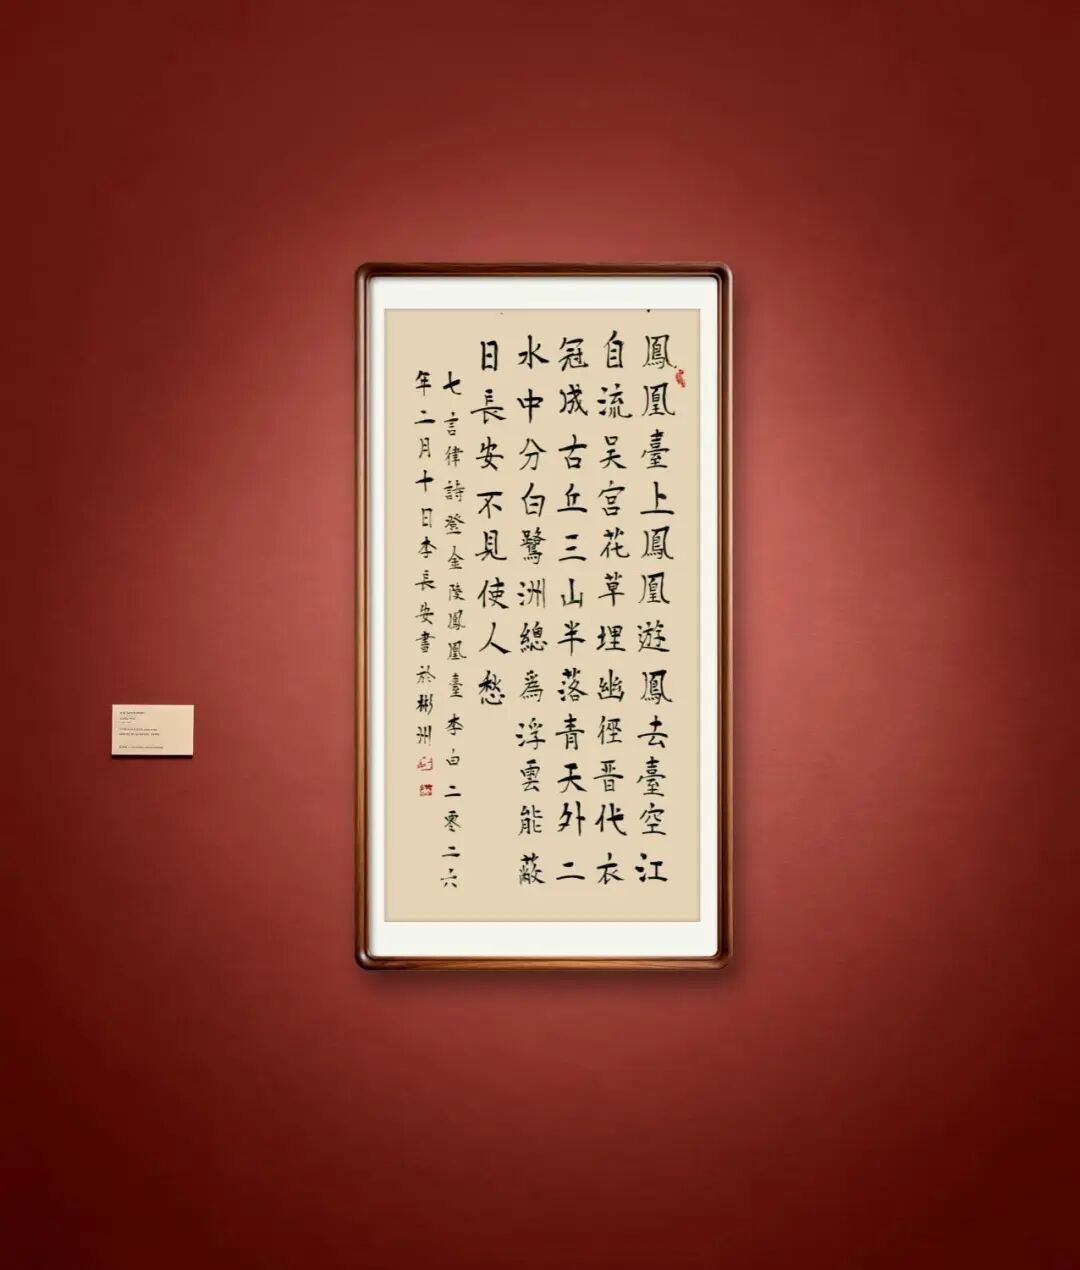 鳳凰臺上鳳凰遊鳳去臺空江
自流吴宫花草埋幽徑晋代衣
冠成古丘三山半落青天外二
水中分白鷺洲總為浮雲能蔽
日長安不見使人愁
七言律詩登金陵鳳凰臺李白二零二六
年二月十日李長安書於彬州